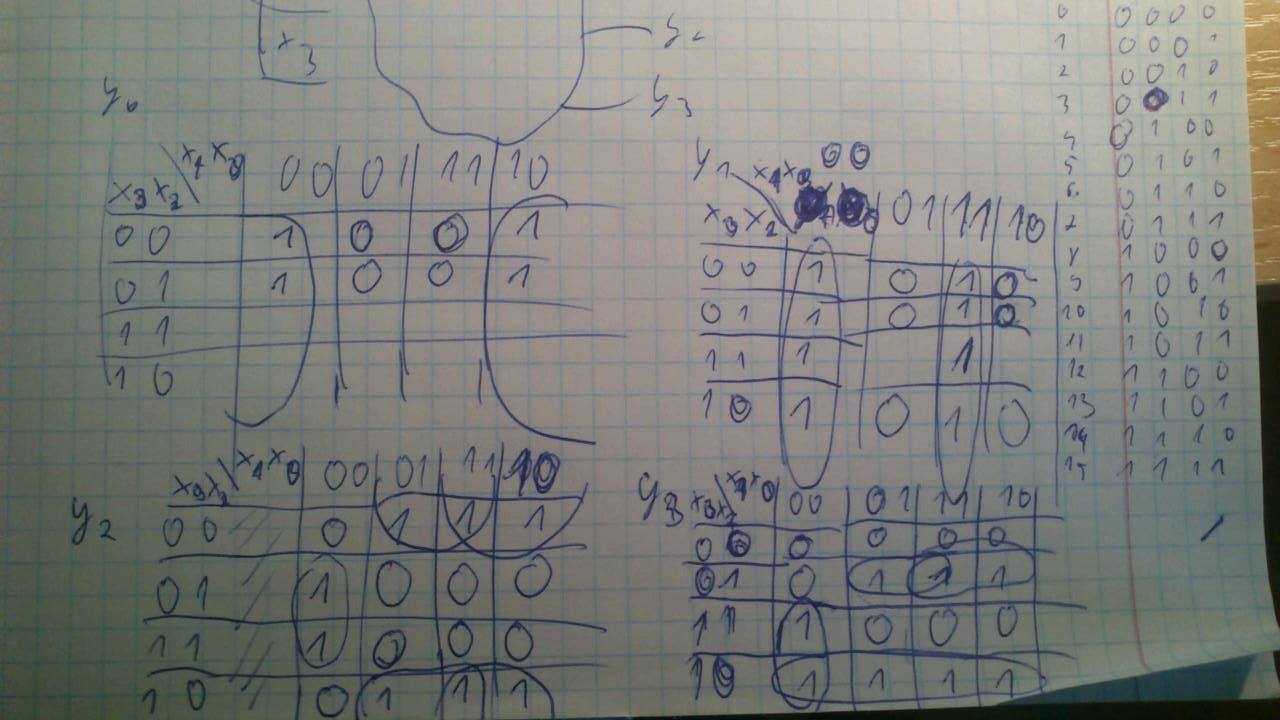 x3
y3
y0
x1x0 00 01 11 10
x3x2
00 1 0 0 1
01 1 0 0 1
11
10
y1 00
x1x0 01 11 10
x3x2
00 1 0 1 0
01 1 0 1 0
11 1 1
10 1 0 1 0
y2 x3x2 x1x0 00 01 11 10
00 0 1 1 1
01 1 0 0 0
11 1 0 0 0
10 0 1 1 1
y3 x3x2 x1x0 00 01 11 10
00 0 0 0 0
01 0 1 1 1
11 1 0 0 0
10 1 1 1 1
0 0000
1 0001
2 0010
3 0011
4 0100
5 0101
6 0110
7 0111
8 1000
9 1001
10 1010
11 1011
12 1100
13 1101
14 1110
15 1111